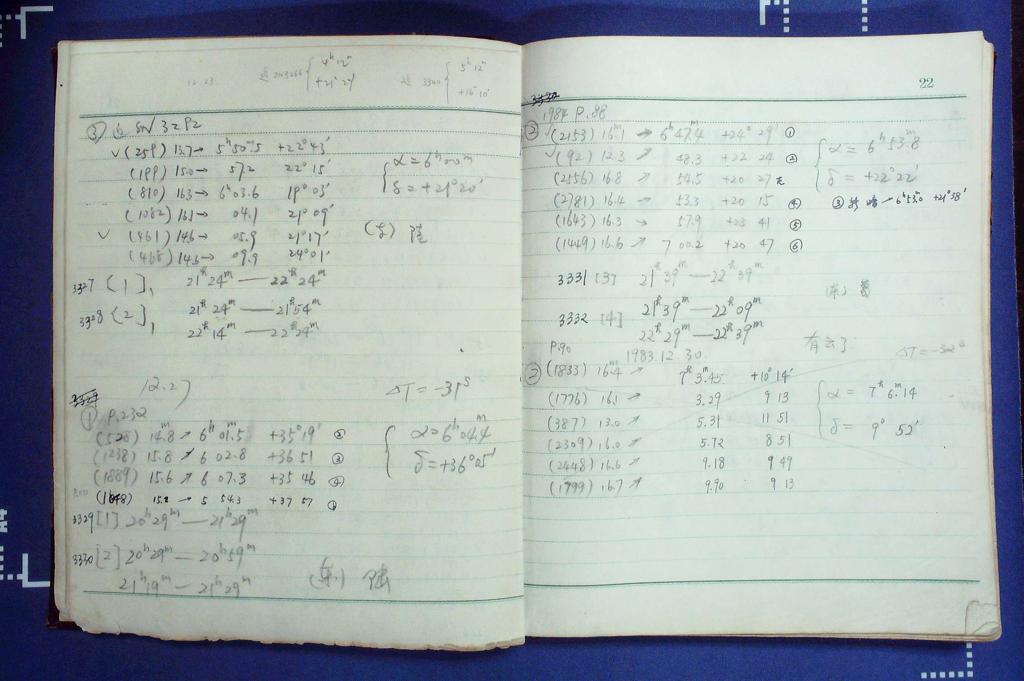 12.23
4ʰ12ᵐ
+21°27′
3300
5ʰ12ᵐ
+16°10′
③
√(259) 13.7→ 5ʰ50ᵐ.5 +22°43′
(199) 15.0→ 57.2 22°15′
(810) 16.3→ 6ʰ03.6 19°03′
(1082) 16.1→ 04.1 21°09′
√ (461) 14.6→ 05.9 21°17′
(468) 14.6→ 09.9 24°01′
α=6ʰ00ᵐ
δ=+21°20′
3327 [1], 21ʰ24ᵐ—22ʰ24ᵐ
3328 [2], 21ʰ24ᵐ—21ʰ54ᵐ
22ʰ14ᵐ—22ʰ24ᵐ
12.27
ΔT=-31ˢ
① P.232
(528) 14.8↗ 6ʰ01ᵐ.5 +35°19′ ②
(1238) 15.8↗ 6 02.8 +36 51 ③
(1889) 15.6↗ 6 07.3 +35 46 ④
(1648) 15.2→ 5 54.3 +37 57 ①
α=6ʰ04ᵐ.4
δ=+36°05′
3329 [1] 20ʰ29ᵐ—21ʰ29ᵐ
3330 [2] 20ʰ29ᵐ—20ʰ59ᵐ
21ʰ19ᵐ—21ʰ29ᵐ
22
1984 P.88
② √(2153) 16ᵐ.1 → 6ʰ47ᵐ.4 +24°29′ ①
√(92) 12.3 ↗ 48.3 +22 24 ②
(2556) 16.8 ↗ 54.5 +20 27 无
(2781) 16.4 ↗ 53.3 +20 15 ④
(1643) 16.3 ↗ 57.9 +23 41 ⑤
(1449) 16.6 ↗ 7 00.2 +20 47 ⑥
α=6ʰ53ᵐ.8
δ=+22°22′
③ 6ʰ53ᵐ.0 +21°38′
3331 [3] 21ʰ39ᵐ—22ʰ39ᵐ
3332 [4] 21ʰ39ᵐ—22ʰ09ᵐ
22ʰ29ᵐ—22ʰ39ᵐ
P.90
1983.12.30.
有云了
ΔT=-32ˢ
② (1833) 16ᵐ.4 ↗ 7ʰ3ᵐ.45 +10°14′
(1776) 16.1 ↗ 3.29 9 13
(387) 13.0 ↗ 5.31 11 51
(2309) 16.0 ↗ 5.72 8 51
(2448) 16.6 ↗ 9.18 9 49
(1799) 16.7 ↗ 9.90 9 13
α=7ʰ6ᵐ.14
δ=9°52′